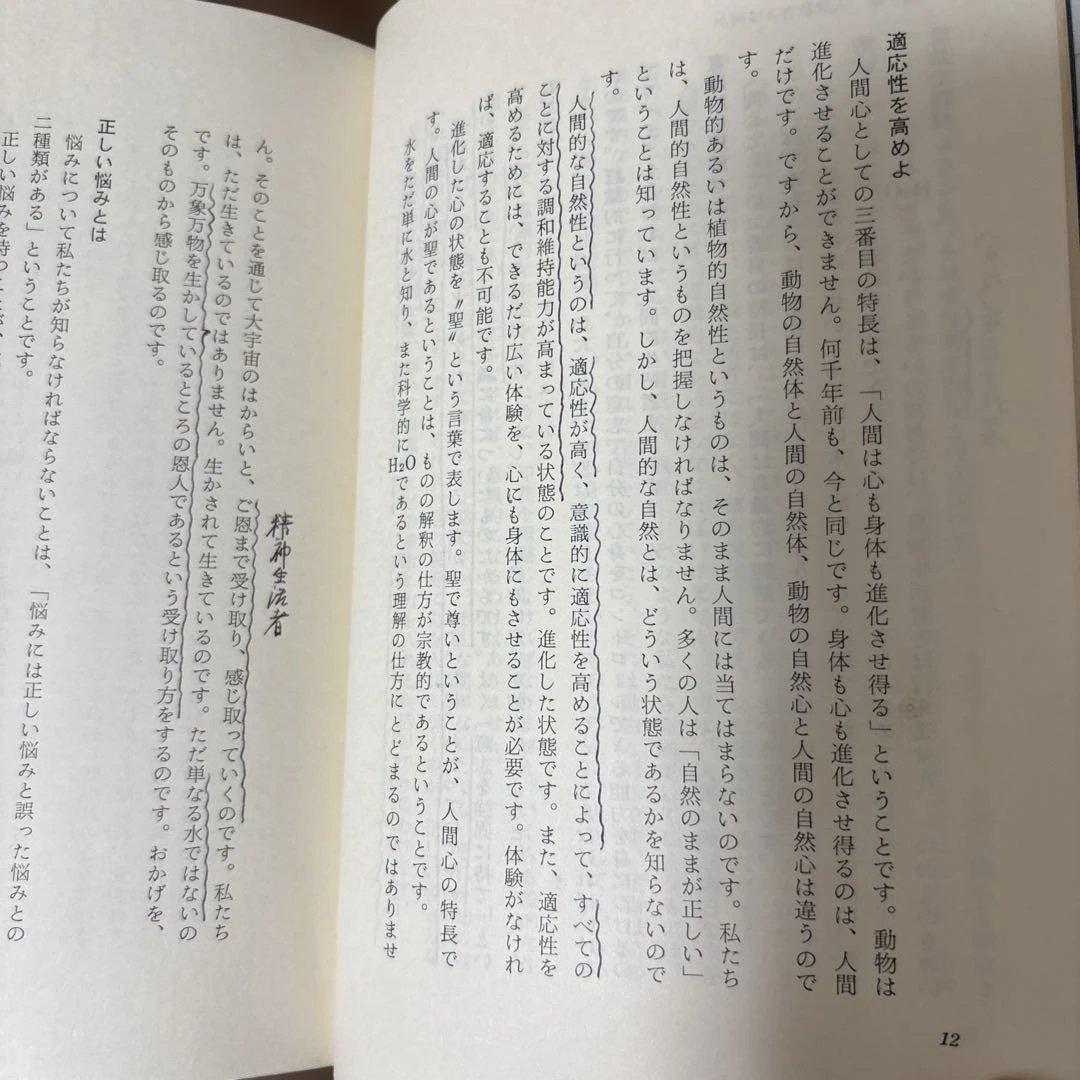 適応性を高めよ
人間心としての三番目の特長は、「人間は心も身体も進化させ得る」ということです。動物は
進化させることができません。何千年前も、今と同じです。身体も心も進化させ得るのは、人間
だけです。ですから、動物の自然体と人間の自然体、動物の自然心と人間の自然心は違うので
す。
動物的あるいは植物的自然性というものは、そのまま人間には当てはまらないのです。私たち
は、人間的自然性というものを把握しなければなりません。多くの人は「自然のままが正しい」
ということは知っています。しかし、人間的な自然とは、どういう状態であるかを知らないので
す。
人間的な自然性というのは、適応性が高く、意識的に適応性を高めることによって、すべての
ことに対する調和維持能力が高まっている状態のことです。進化した状態です。また、適応性を
高めるためには、できるだけ広い体験を、心にも身体にもさせることが必要です。体験がなけれ
ば、適応することも不可能です。
進化した心の状態を〝聖〟という言葉で表します。聖で尊いということが、人間心の特長で
す。人間の心が聖であるということは、ものの解釈の仕方が宗教的であるということです。
水をただ単に水と知り、また科学的にH₂Oであるという理解の仕方にとどまるのではありませ
12
精神生活者
ん。そのことを通じて大宇宙のはからいと、ご恩まで受け取り、感じ取っていくのです。私たち
は、ただ生きているのではありません。生かされて生きているのです。ただ単なる水ではないの
です。万象万物を生かしているところの恩人であるという受け取り方をするのです。おかげを、
そのものから感じ取るのです。
正しい悩みとは
悩みについて私たちが知らなければならないことは、「悩みには正しい悩みと誤った悩みとの
二種類がある」ということです。
正しい悩みを持つ